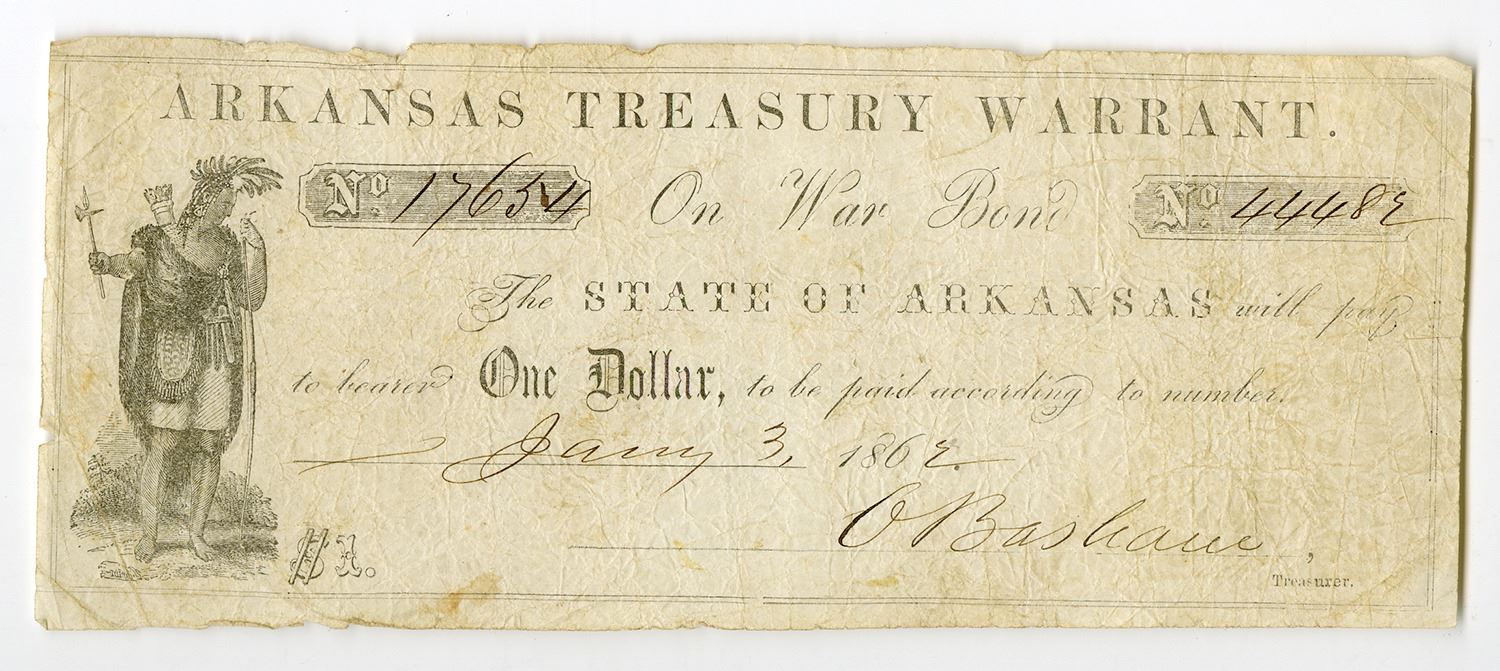 ARKANSAS TREASURY WARRANT.
No. 17654 On War Bond No. 44482
The STATE OF ARKANSAS will pay
to bearer One Dollar, to be paid according to number.
Jany 3, 1862.
O Basham,
$1.
Treasurer.